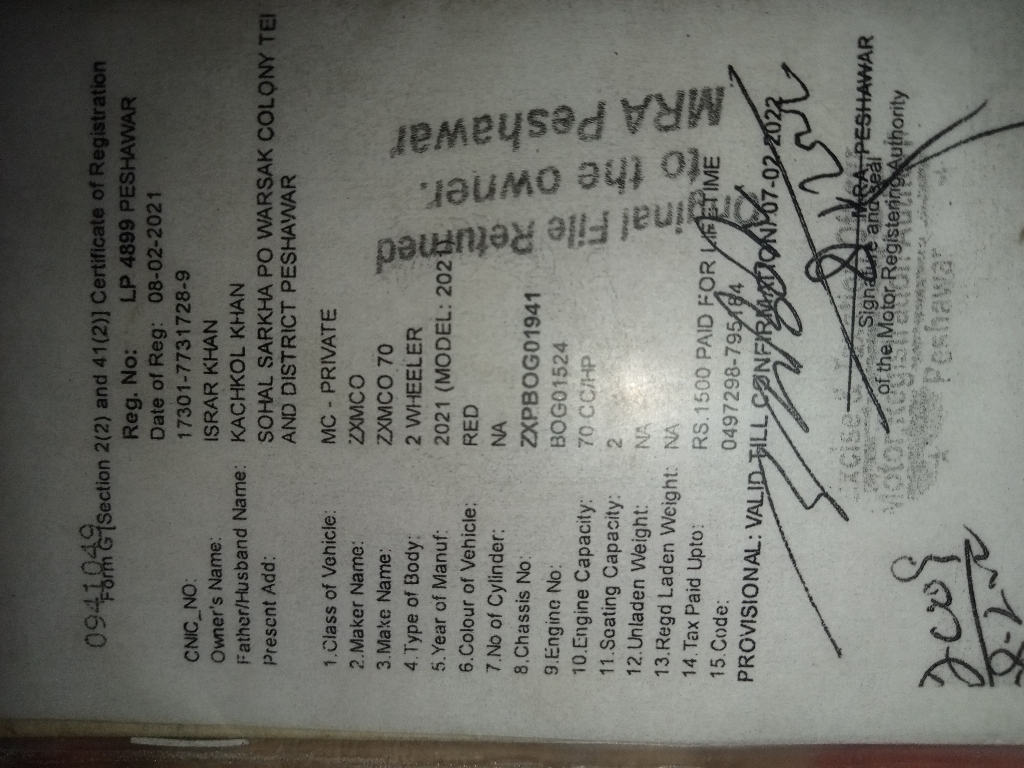 0941049
Form G [Section 2(2) and 41(2)] Certificate of Registration
Reg. No: LP 4899 PESHAWAR
Date of Reg: 08-02-2021
CNIC_NO: 17301-7731728-9
Owner's Name: ISRAR KHAN
Father/Husband Name: KACHKOL KHAN
Present Add: SOHAL SARKHA PO WARSAK COLONY TEI
AND DISTRICT PESHAWAR
1.Class of Vehicle: MC - PRIVATE
2.Maker Name: ZXMCO
3.Make Name: ZXMCO 70
4.Type of Body: 2 WHEELER
5.Year of Manuf: 2021 (MODEL: 2021)
6.Colour of Vehicle: RED
7.No of Cylinder: NA
8.Chassis No: ZXPBOG01941
9.Engine No: BOG01524
10.Engine Capacity: 70 CC/HP
11.Seating Capacity: 2
12.Unladen Weight: NA
13.Regd Laden Weight: NA
14.Tax Paid Upto: RS.1500 PAID FOR LIFETIME
15.Code: 0497298-795184
PROVISIONAL: VALID TILL CONFIRMATION/ 07-02-2022
File Returned
to the owner.
MRA Peshawar
MRA PESHAWAR
Signature and Seal
of the Motor Registering Authority
Motor Registration
Peshawar